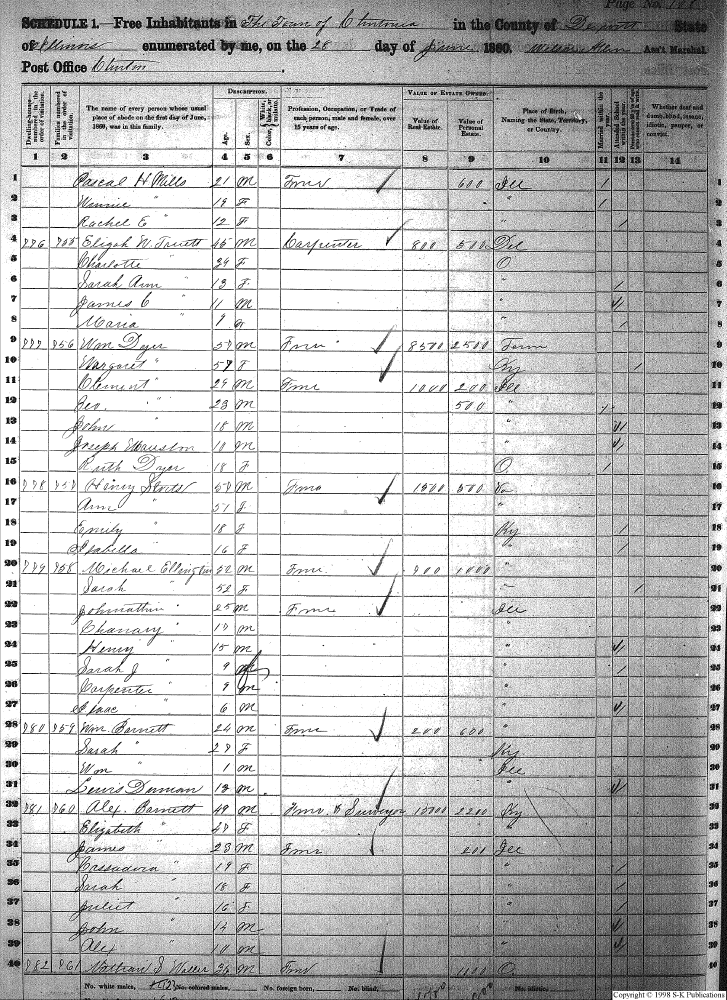 Page No. 108
SCHEDULE 1.—Free Inhabitants in The Town of Clintonia in the County of Dewitt State
of Illinois enumerated by me, on the 28 day of June 1860. William Allen Ass't Marshal.
Post Office Clinton.
Dwelling-houses—numbered in the order of visitation.
Families numbered in the order of visitation.
The name of every person whose usual place of abode on the first day of June, 1860, was in this family.
DESCRIPTION.
Age.
Sex.
Color, White, black, or mulatto.
Profession, Occupation, or Trade of each person, male and female, over 15 years of age.
VALUE OF ESTATE OWNED.
Value of Real Estate.
Value of Personal Estate.
Place of Birth, Naming the State, Territory, or Country.
Married within the year.
Attended School within the year.
Whether deaf and dumb, blind, insane, idiotic, pauper, or convict.
1 2 3 4 5 6 7 8 9 10 11 12 13 14
1 Pascal H Mills 21 M Fmr 600 Ill / 1
2 Winnie " 19 F " / 2
3 Rachel E " 12 F " / 3
4 776 755 Elijah W. Truett 45 M Carpenter 800 500 Del 4
5 Charlotte " 39 F O 5
6 Sarah Ann " 13 F " / 6
7 James C " 11 M " / 7
8 Maria " 9 " / 8
9 777 756 Wm Dyer 57 M Fmr 8500 2500 Tenn 9
10 Margaret " 57 F Ky / 10
11 Clement " 29 M Fmr 1000 200 Ill 11
12 Geo. " 23 M 500 " / 12
13 John " 18 M " / 13
14 Joseph 10 M " / 14
15 Ruth Dyer 18 F O / 15
16 778 757 Henry 57 M Fmr 1500 500 Va 16
17 Ann " 51 F " 17
18 Emily " 18 F Ky / 18
19 Isabella " 16 F " / 19
20 779 758 Michael Ellington 52 M Fmr 900 1000 " 20
21 Sarah " 52 F " / 21
22 Johnathan " 25 M Fmr Ill 22
23 " 17 M " 23
24 Henry " 15 M " / 24
25 Sarah J " 9 " / 25
26 Carpenter " 9 M " 26
27 Isaac " 6 M " / 27
28 780 759 Wm. Barnett 24 M Fmr 200 600 " 28
29 Sarah " 27 F Ky 29
30 Wm " 1 M Ill 30
31 Lewis Dunnan 13 M " / 31
32 781 760 Alex. Barnett 49 M Fmr & Surveyor 2200 Ky 32
33 Elizabeth " 47 F " 33
34 James " 23 M Fmr 200 Ill 34
35 Cassandra " 19 F " / 35
36 Sarah " 18 F " / 36
37 Juliet " 16 F " / 37
38 John " 14 M " / 38
39 Alex " 10 M " / 39
40 782 761 Nathan S Waller 36 M Fmr O 40
No. white males, No. colored males, No. foreign born, No. blind,
Copyright © 1998 S-K Publications